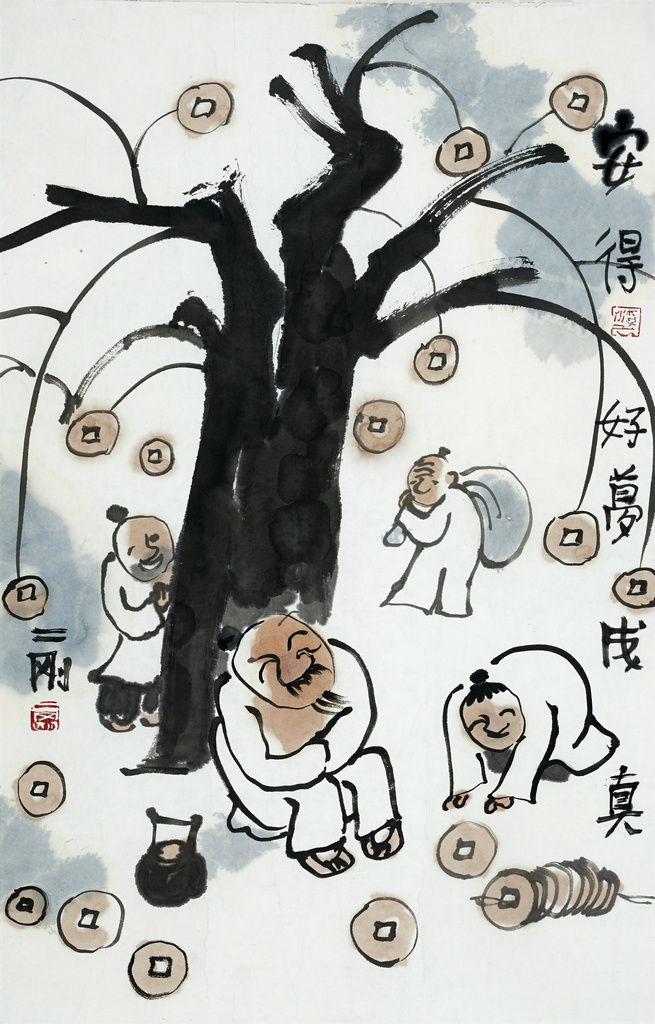 安得好夢成真
二刚